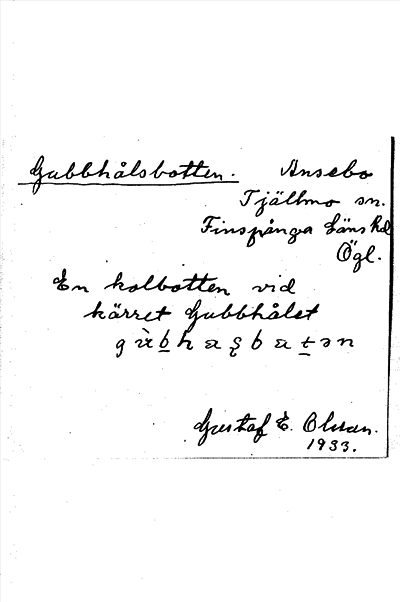 Gubbhålsbotten. Ansebo
Tjällmo sn.
Finspånga läns hd
Ögl.
En kolbotten vid
kärret Gubbhålet
Gustaf E. Olsson.
1933.